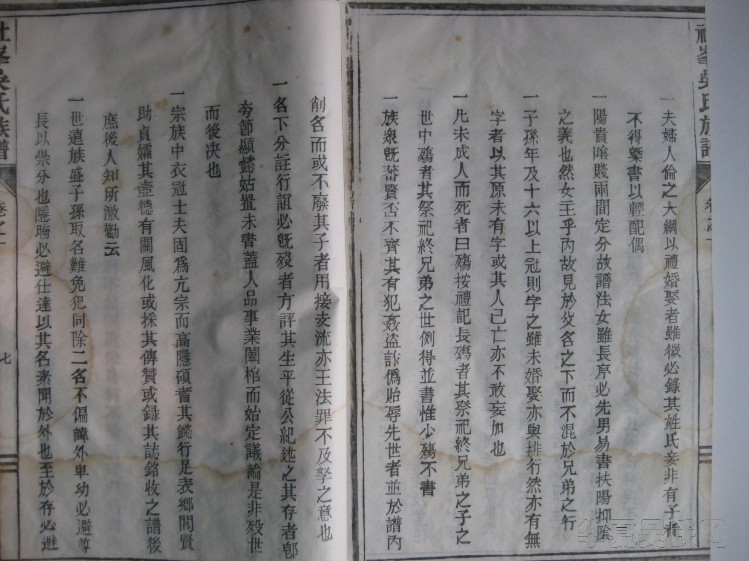 一夫婦人倫之大綱以禮婚娶者雖微必錄其姓氏妾非有子者
不得槩書以輕配偶
一陽貴隂賤兩間定分故譜法女雖長序必先男易書扶陽抑隂
之義也然女主乎内故見於父名之下而不混於兄弟之行
一子孫年及十六以上冠則字之雖未婚娶亦與排行然亦有無
字者以其原未有字或其人已亡亦不敢妄加也
一凡未成人而死者曰殤按禮記長殤者其祭祀終兄弟之子之
世中殤者其祭祀終兄弟之世例得並書惟少殤不書
一族衆旣蕃賢否不齊其有犯姦盜訛僞貽辱先世者並於譜内
削名而或不廢其子者用接支流亦王法罪不及孥之意也
一名下分註行誼必旣歿者方評其生平從公紀述之其存者卽
夸節顯懿姑置未書蓋人品事業闔棺而始定議論是非歿世
而後决也
一宗族中衣冠士夫固爲亢宗而高隱碩耆其懿行足表鄉閭賢
助貞孀其壼德有關風化或採其傳贊或錄其誌銘收之譜後
庶後人知所激勸云
一世遠族盛子孫取名難免犯同除二名不偏諱外卑幼必避尊
長以崇分也隱晦必避仕達以其名素聞於外也至於存必避
吳氏族譜
卷之一
七